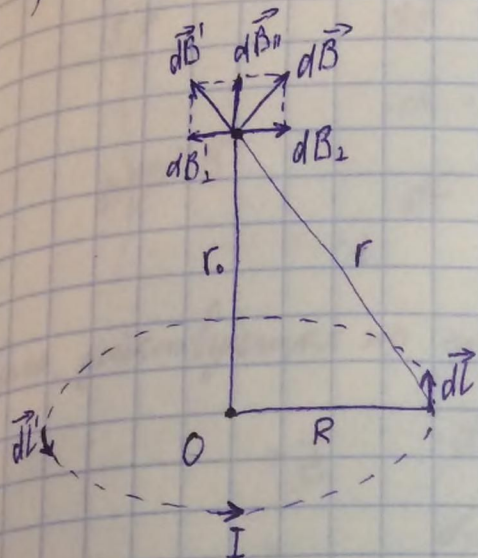 dB⃗' dB⃗ıı dB⃗
dB⊥' dB⊥
r₀ r
dl⃗
dl⃗' O R
I